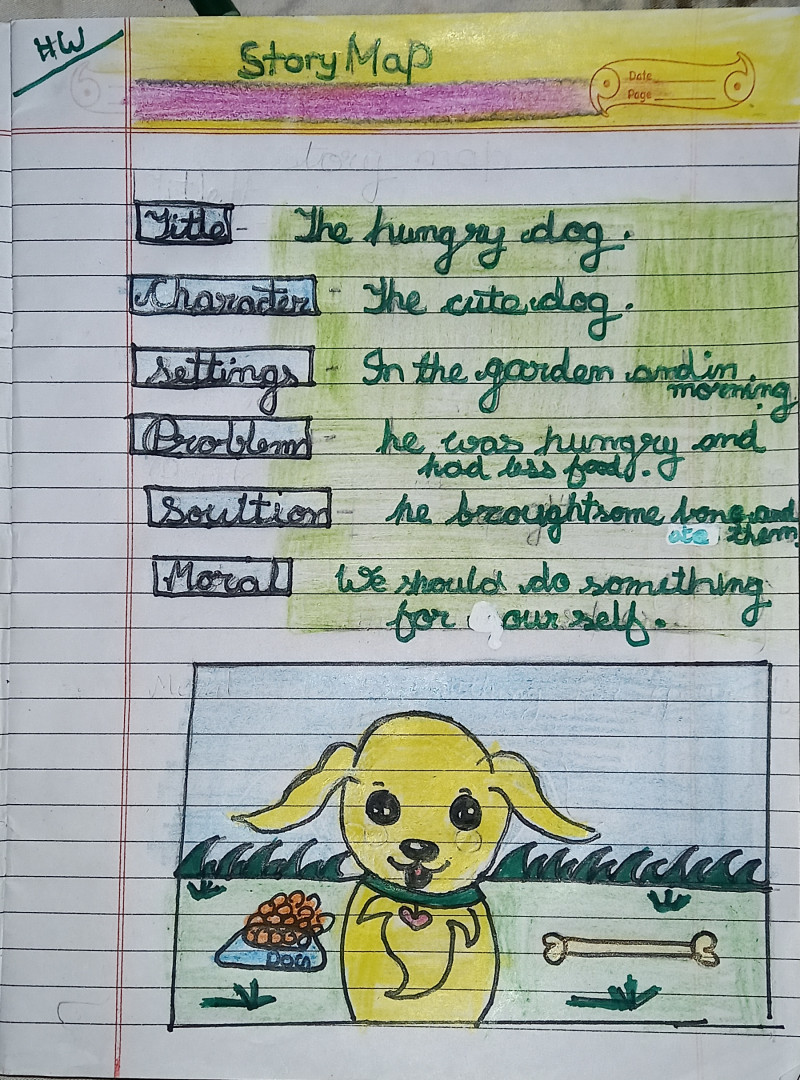 HW
Story Map
Date
Page
Title - The hungry dog.
Character - The cute dog.
settings - In the garden and in
morning.
Problem - he was hungry and
had less food.
Souttion - he brought some bone and
ate them.
Moral We should do something
for our self.
DOG